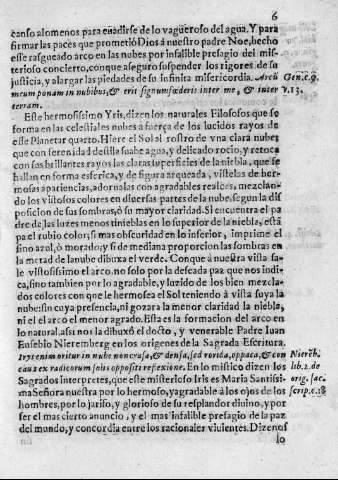 6
canso alomenos para euadirse de lo vagueroso del agua. Y para
firmar las paces que prometiò Dios à nuestro padre Noe, hecho
esse rasgueado arco en las nubes por infalible presagio del mis-
terioso concierto, conque aseguro suspender los rigores de su
justicia, y alargar las piedades de su infinita misericordia. Arcũ
meum ponam in nubibus, & erit signum fœderis inter me, & inter
terram.
Gen. c. 9.
v. 13.
Este hermosissimo Yris, dizen los naturales Filosofos que se
forma en las celestiales nubes à fuerça de los lucidos rayos de
este Planetar quarto. Hiere el Sol al rostro de vna clara nube
que con serenidad destila suabe agua, y delicado rocio, y retoca
con sus brillantes rayos las claras superficies de la niebla, que se
hallan en forma esferica, y de figura arqueada, vistelas de her-
mosas apariencias, adornalas con agradables realces, mezclan-
do los vistosos colores en diuersas partes de la nube, segun la dis
posicion de sus sombras, ò su mayor claridad. Si encuentra el pa
dre de las luzes menos tinieblas en lo superior de la niebla, està
pa el rubio color; si mas obscuridad en lo inferior, imprime el
sino azul, ò morado; y si de mediana proporcion las sombras en
la metad de la nube dibuxa el verde. Con que à nuestra vista sa-
le vistosissimo el arco, no solo por la deseada paz que nos indi-
ca, sino tambien por lo agradable, y luzido de los bien mezcla-
dos colores con que le hermosea el Sol teniendo à vista suya la
nube: sin cuya presencia, ni gozara la menor claridad la niebla,
ni el el arco el menor agrado. Esta es la formacion del arco en
lo natural, assi nos la dibuxò el docto, y venerable Padre Iuan
Eusebio Nieremberg en los origenes de la Sagrada Escritura.
Irys enim oritur in nube non crasa, & densa, sed rorida, oppaca, & con
caua ex radiorum solis oppositi reflexione. En lo mistico dizen los
Sagrados interpretes, que este misterioso Iris es Maria Santissi-
ma Señora nuestra por lo hermoso, y agradable à los ojos de los
hombres, por lo jariso, y glorioso de su resplandor diuino, y por
ser el mas cierto anuncio, y el mas infalible presagio de la paz
del mundo, y concordia entre los racionales viuientes. Dizenos
Nierēb.
lib. 2. de
orig. sac.
scrip. c. 18
lo